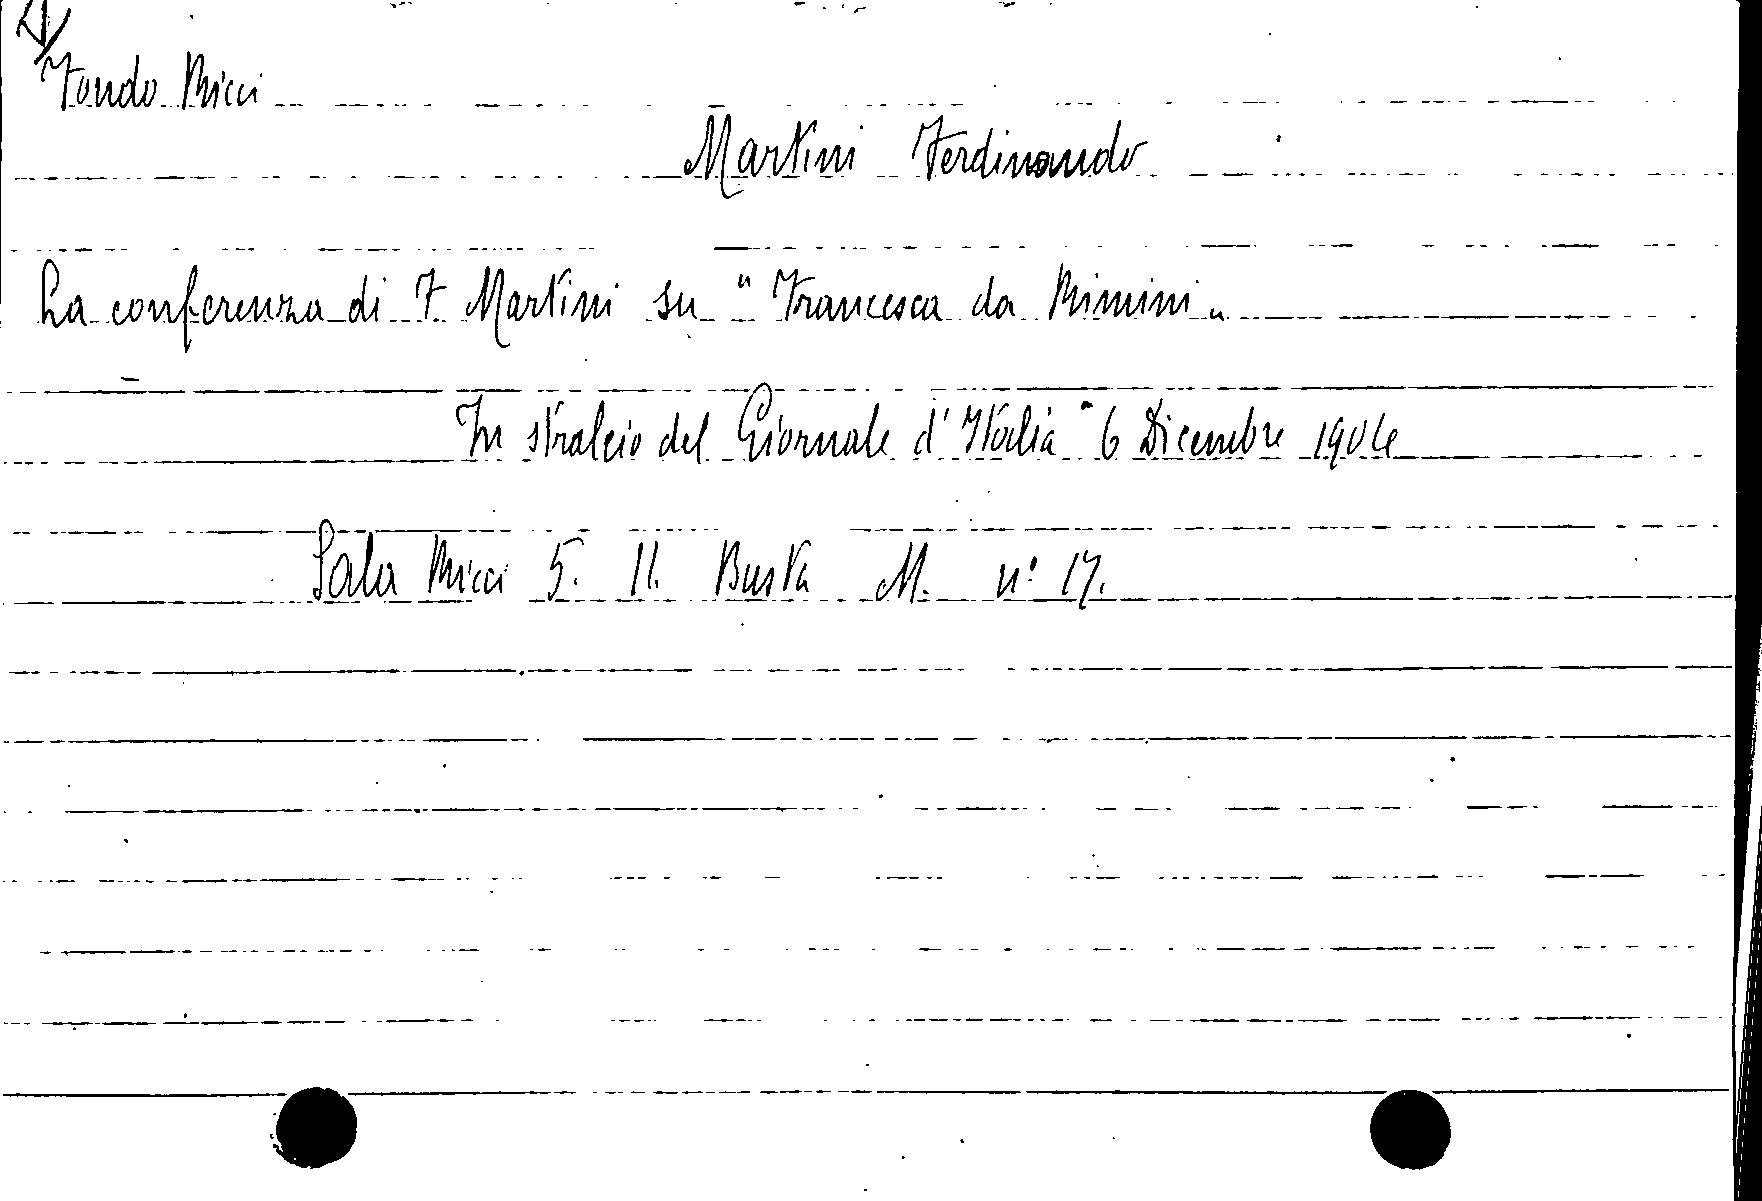 Fondo Ricci
Martini Ferdinando
La conferenza di F Martini su " Francesca da Rimini "
In stralcio del Giornale d'Italia " 6 Dicembre
Sala Ricci 5. II. Busta M. n° 17.